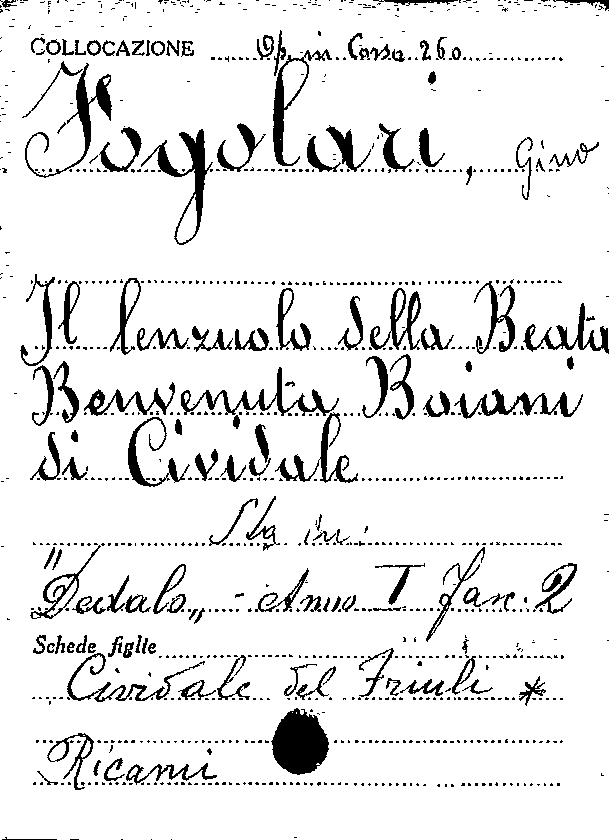 COLLOCAZIONE Op. in Corso 260
Fogolari, Gino
Il lenzuolo della Beata
Benvenuta Boiani
di Cividale
Sta in:
"Dedalo„ - Anno I Fasc. 2
Schede figlie
Cividale del Friuli *
Ricami